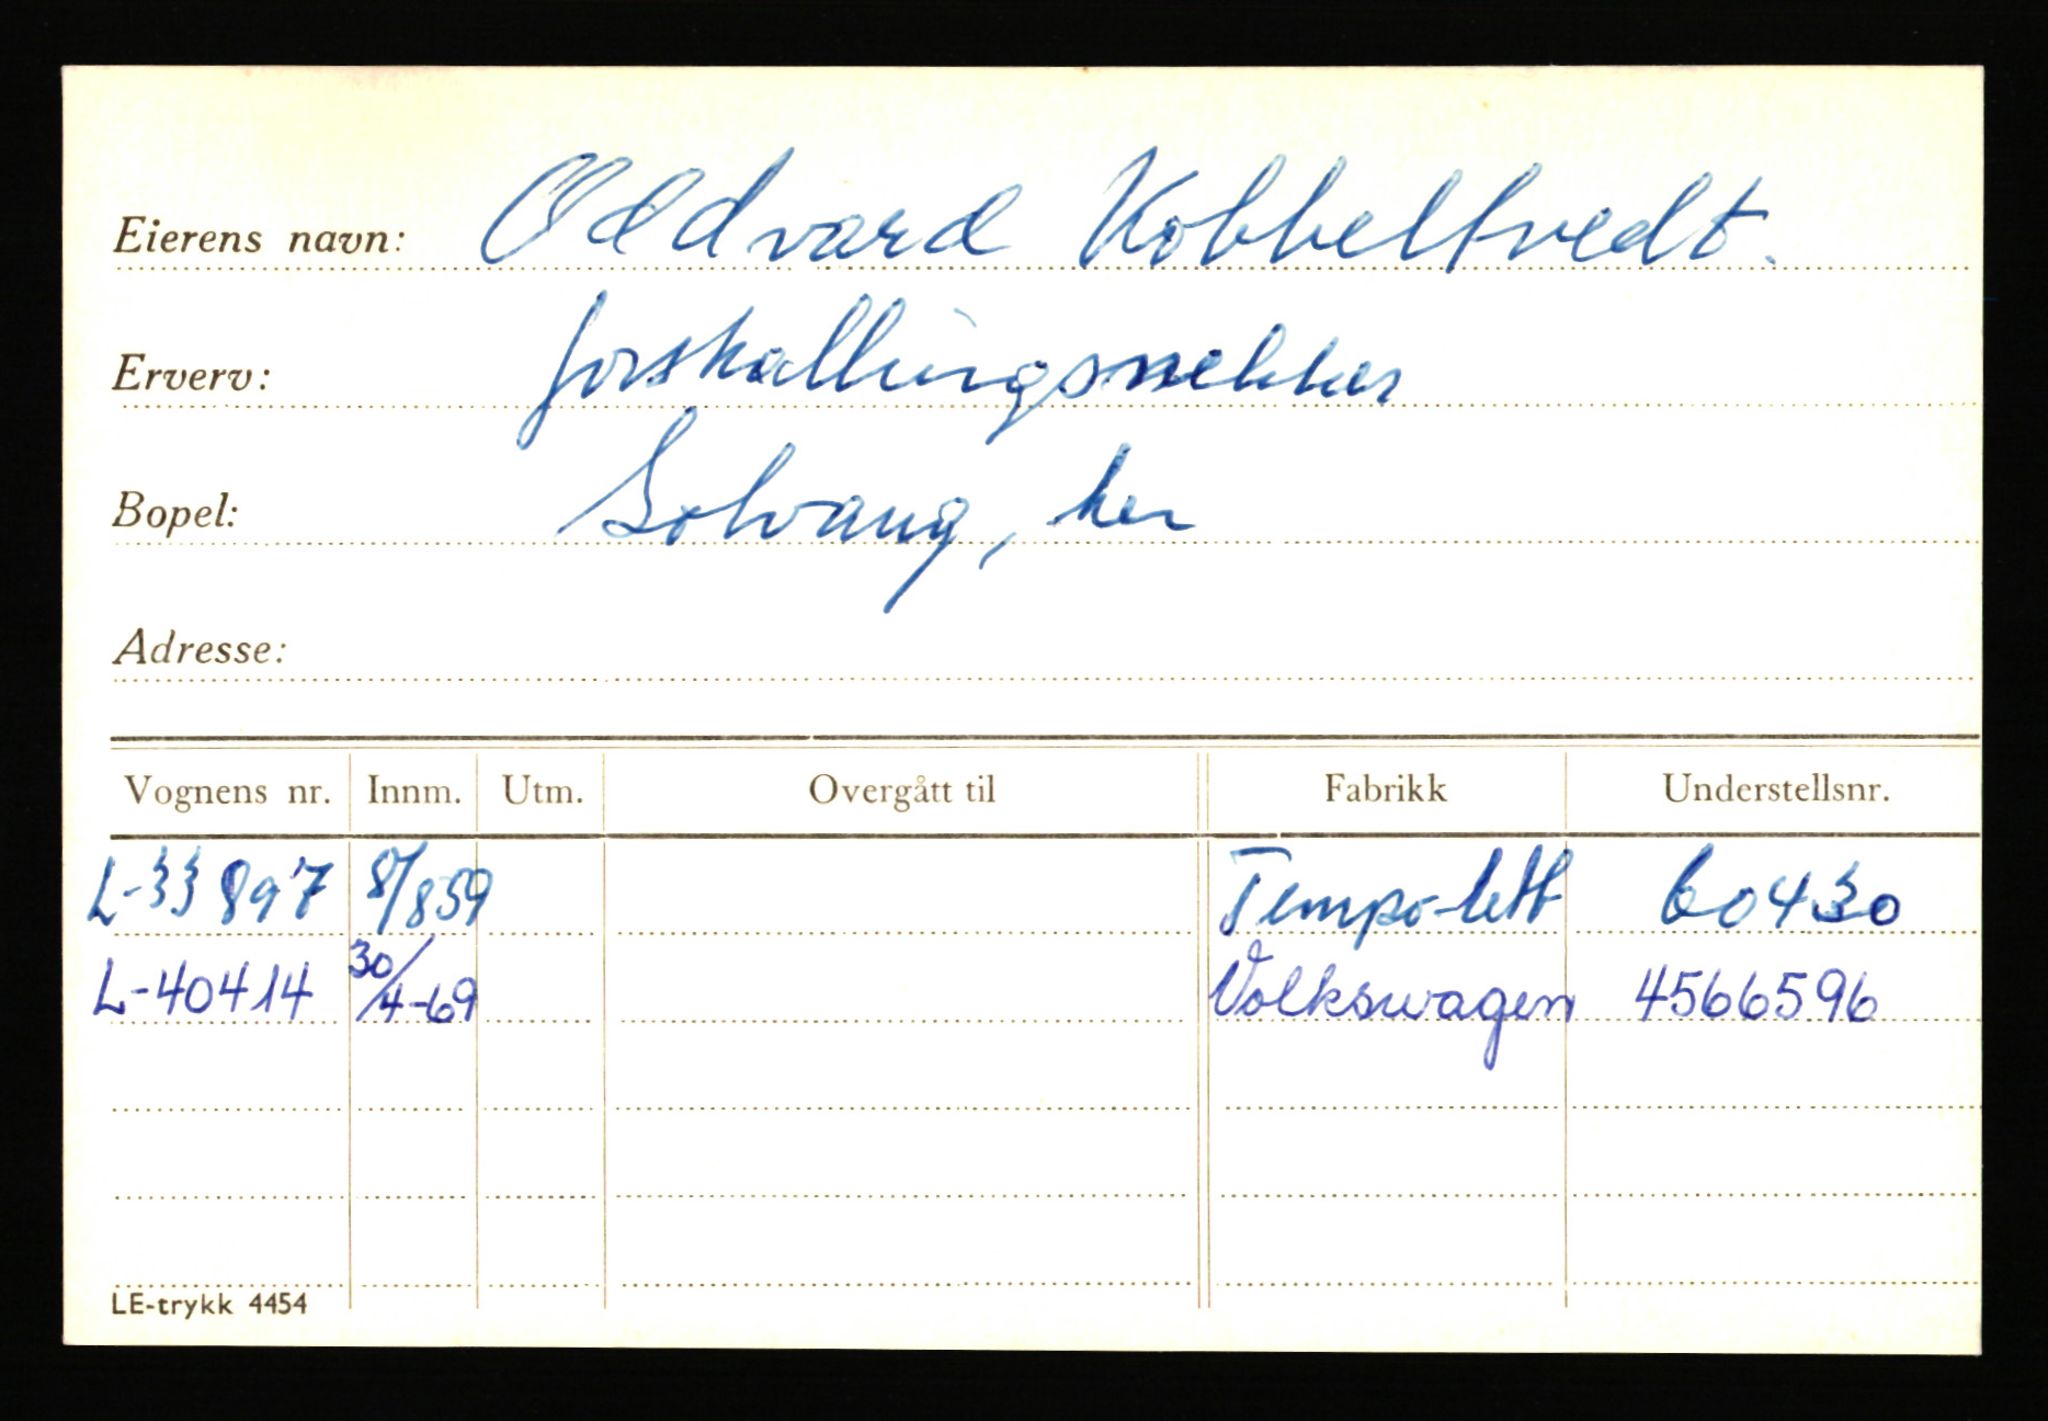 Eierens navn: Oddvard Kobbeltvedt.
Erverv: forskallingsnekker
Bopel: Solvang, her
Adresse:
Vognens nr. Innm. Utm. Overgått til Fabrikk Understellsnr.
L-33897 8/8 59 Tempo-lett 60430
L-40414 30/4-69 Volkswagen 4566596
LE-trykk 4454